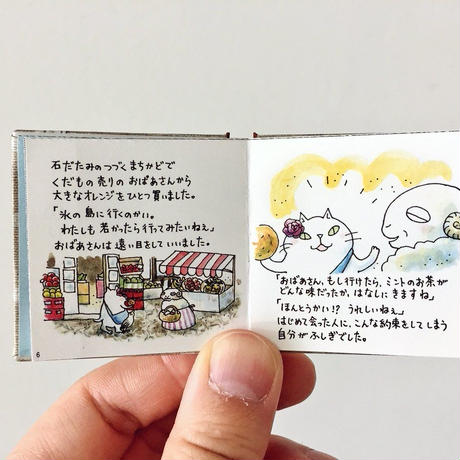 石だたみのつづくまちかどで
くだもの売りのおばあさんから
大きなオレンジをひとつ買いました。
「氷の島に行くのかい。
わたしも若かったら行ってみたいねえ」
おばあさんは遠い目をしていいました。
6
「おばあさん、もし行けたら、ミントのお茶が
どんな味だったか、はなしにきますね」
「ほんとうかい!? うれしいねぇ」
はじめて会った人に、こんな約束をしてしまう
自分がふしぎでした。